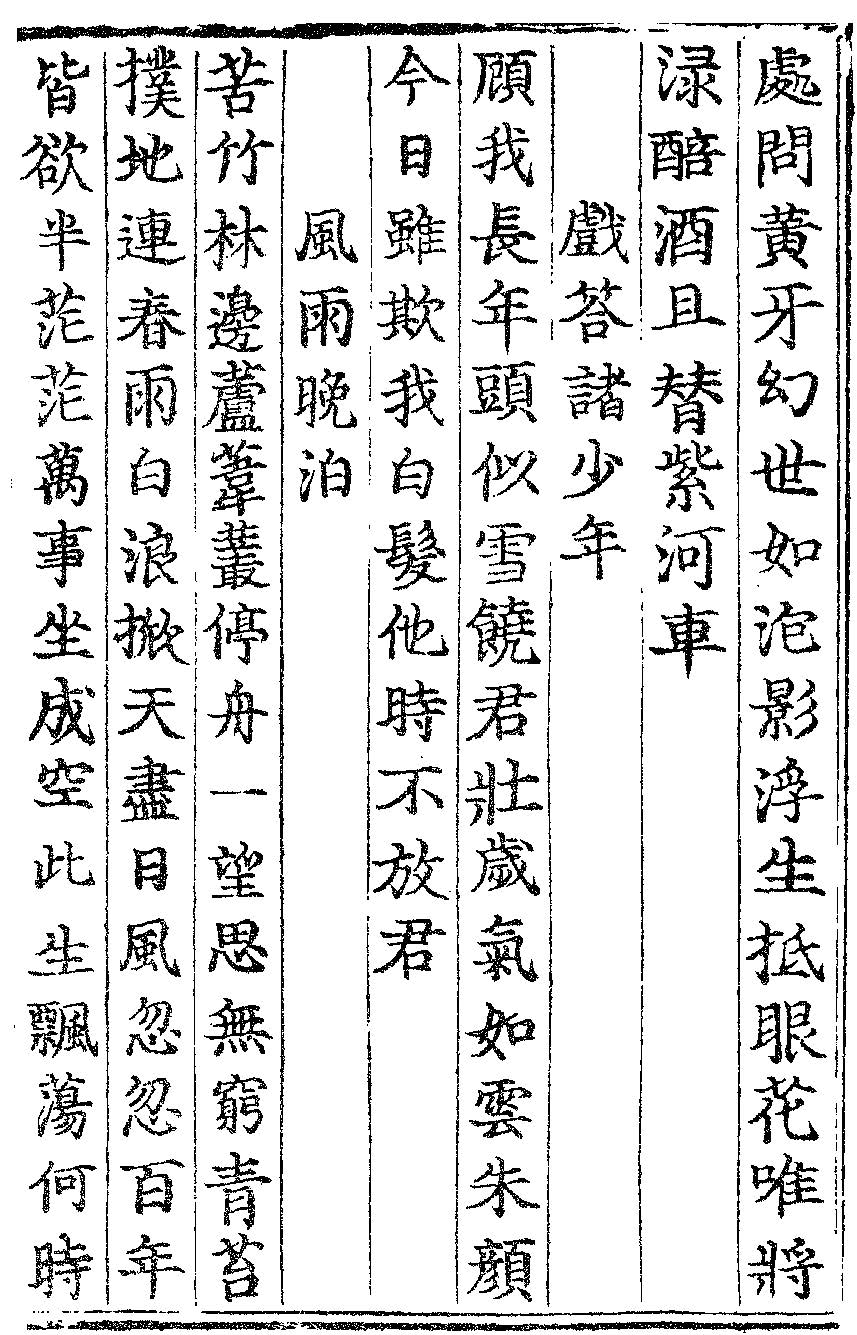 處問黃牙幻世如泡影浮生抵眼花唯將
淥醅酒且替紫河車
戲答諸少年
顧我長年頭似雪饒君壯歲氣如雲朱顏
今日雖欺我白髮他時不放君
風雨晚泊
苦竹林邊蘆葦叢停舟一望思無窮青苔
撲地連春雨白浪掀天盡日風忽忽百年
皆欲半茫茫萬事坐成空此生飄蕩何時